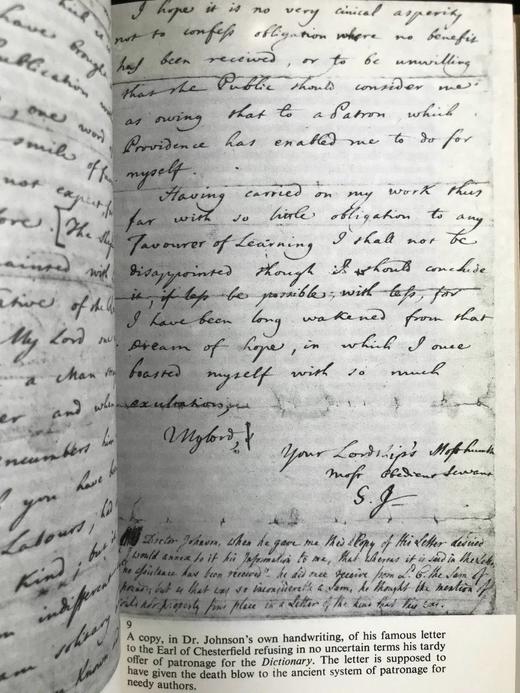 which is
have brought
Publication
one word
smile of
not expect
The
ainted with
ative of the
My Lord one
a Man
er and when
ncumbers him
you have be
Labours, ha
Kind; but it
indifferent
am solitary
known
I hope it is no very cinical asperity
not to confess obligation where no benefit
has been received, or to be unwilling
that the Public should consider me
as owing that to a Patron, which
Providence has enabled me to do for
myself.
Having carried on my work thus
far with so little obligation to any
Favourer of Learning I shall not be
disappointed though I should conclude
it, if less be possible, with less, for
I have been long wakened from that
dream of hope, in which I once
boasted myself with so much
exultation,
My lord,
Your Lordship's Most humble
most obedient Servant
S. J.
Doctor Johnson, when he gave me this Copy of His Letter desired
I would annex to it his Information to me, that whereas it is said in the Letter
"no assistance has been received". he did once receive from L. C. the Sum of
pounds; but as that was so inconsiderable a Sum, he thought the mention of
could not properly find place in a Letter of the kind that this
9
A copy, in Dr. Johnson's own handwriting, of his famous letter
to the Earl of Chesterfield refusing in no uncertain terms his tardy
offer of patronage for the Dictionary. The letter is supposed to
have given the death blow to the ancient system of patronage for
needy authors.